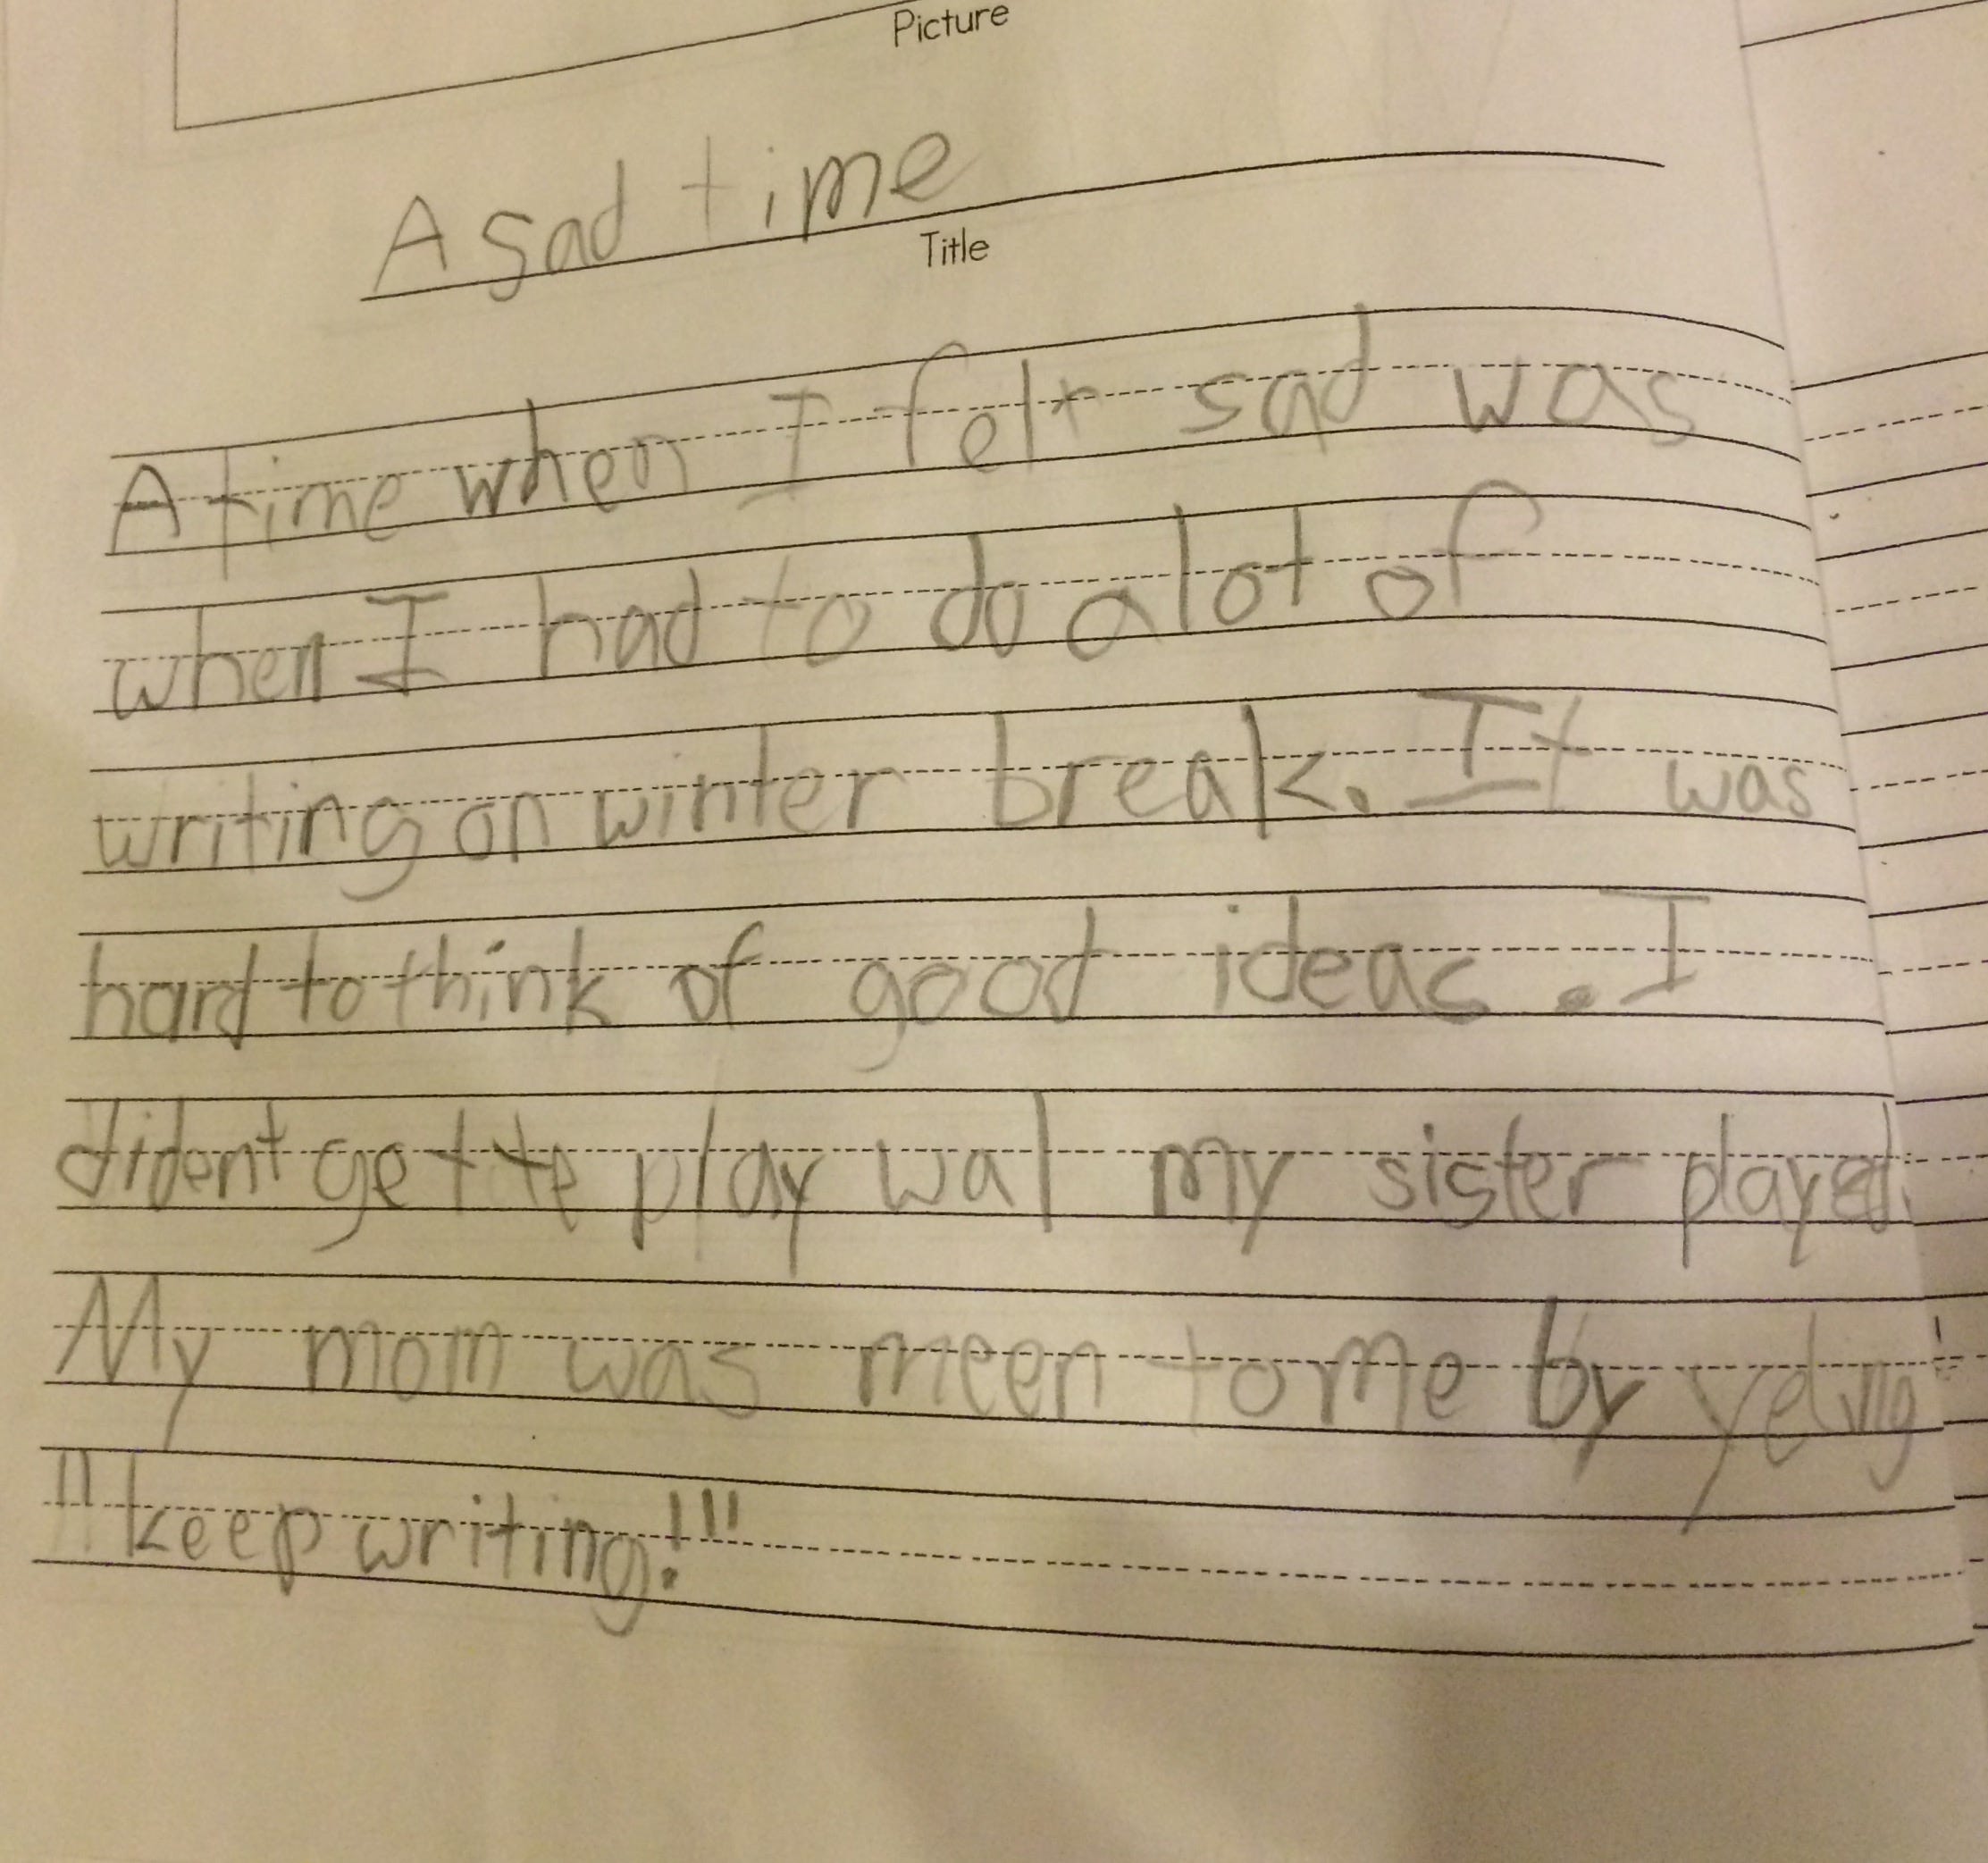 Picture
A sad time
Title
A time when I felt sad was
when I had to do a lot of
writing on winter break. It was
hard to think of good ideas. I
dident get te play wal my sister played.
My mom was meen to me by yelvig
"keep writing!"